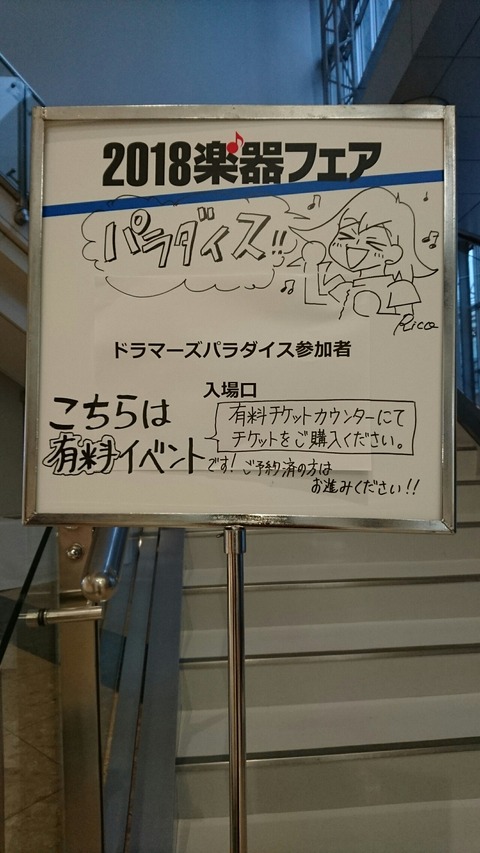 2018楽器フェア
パラダイス!!
Rico
ドラマーズパラダイス参加者
入場口
こちらは
有料イベントです!
有料チケットカウンターにて
チケットをご購入ください。
ご予約済の方は
お進みください!!